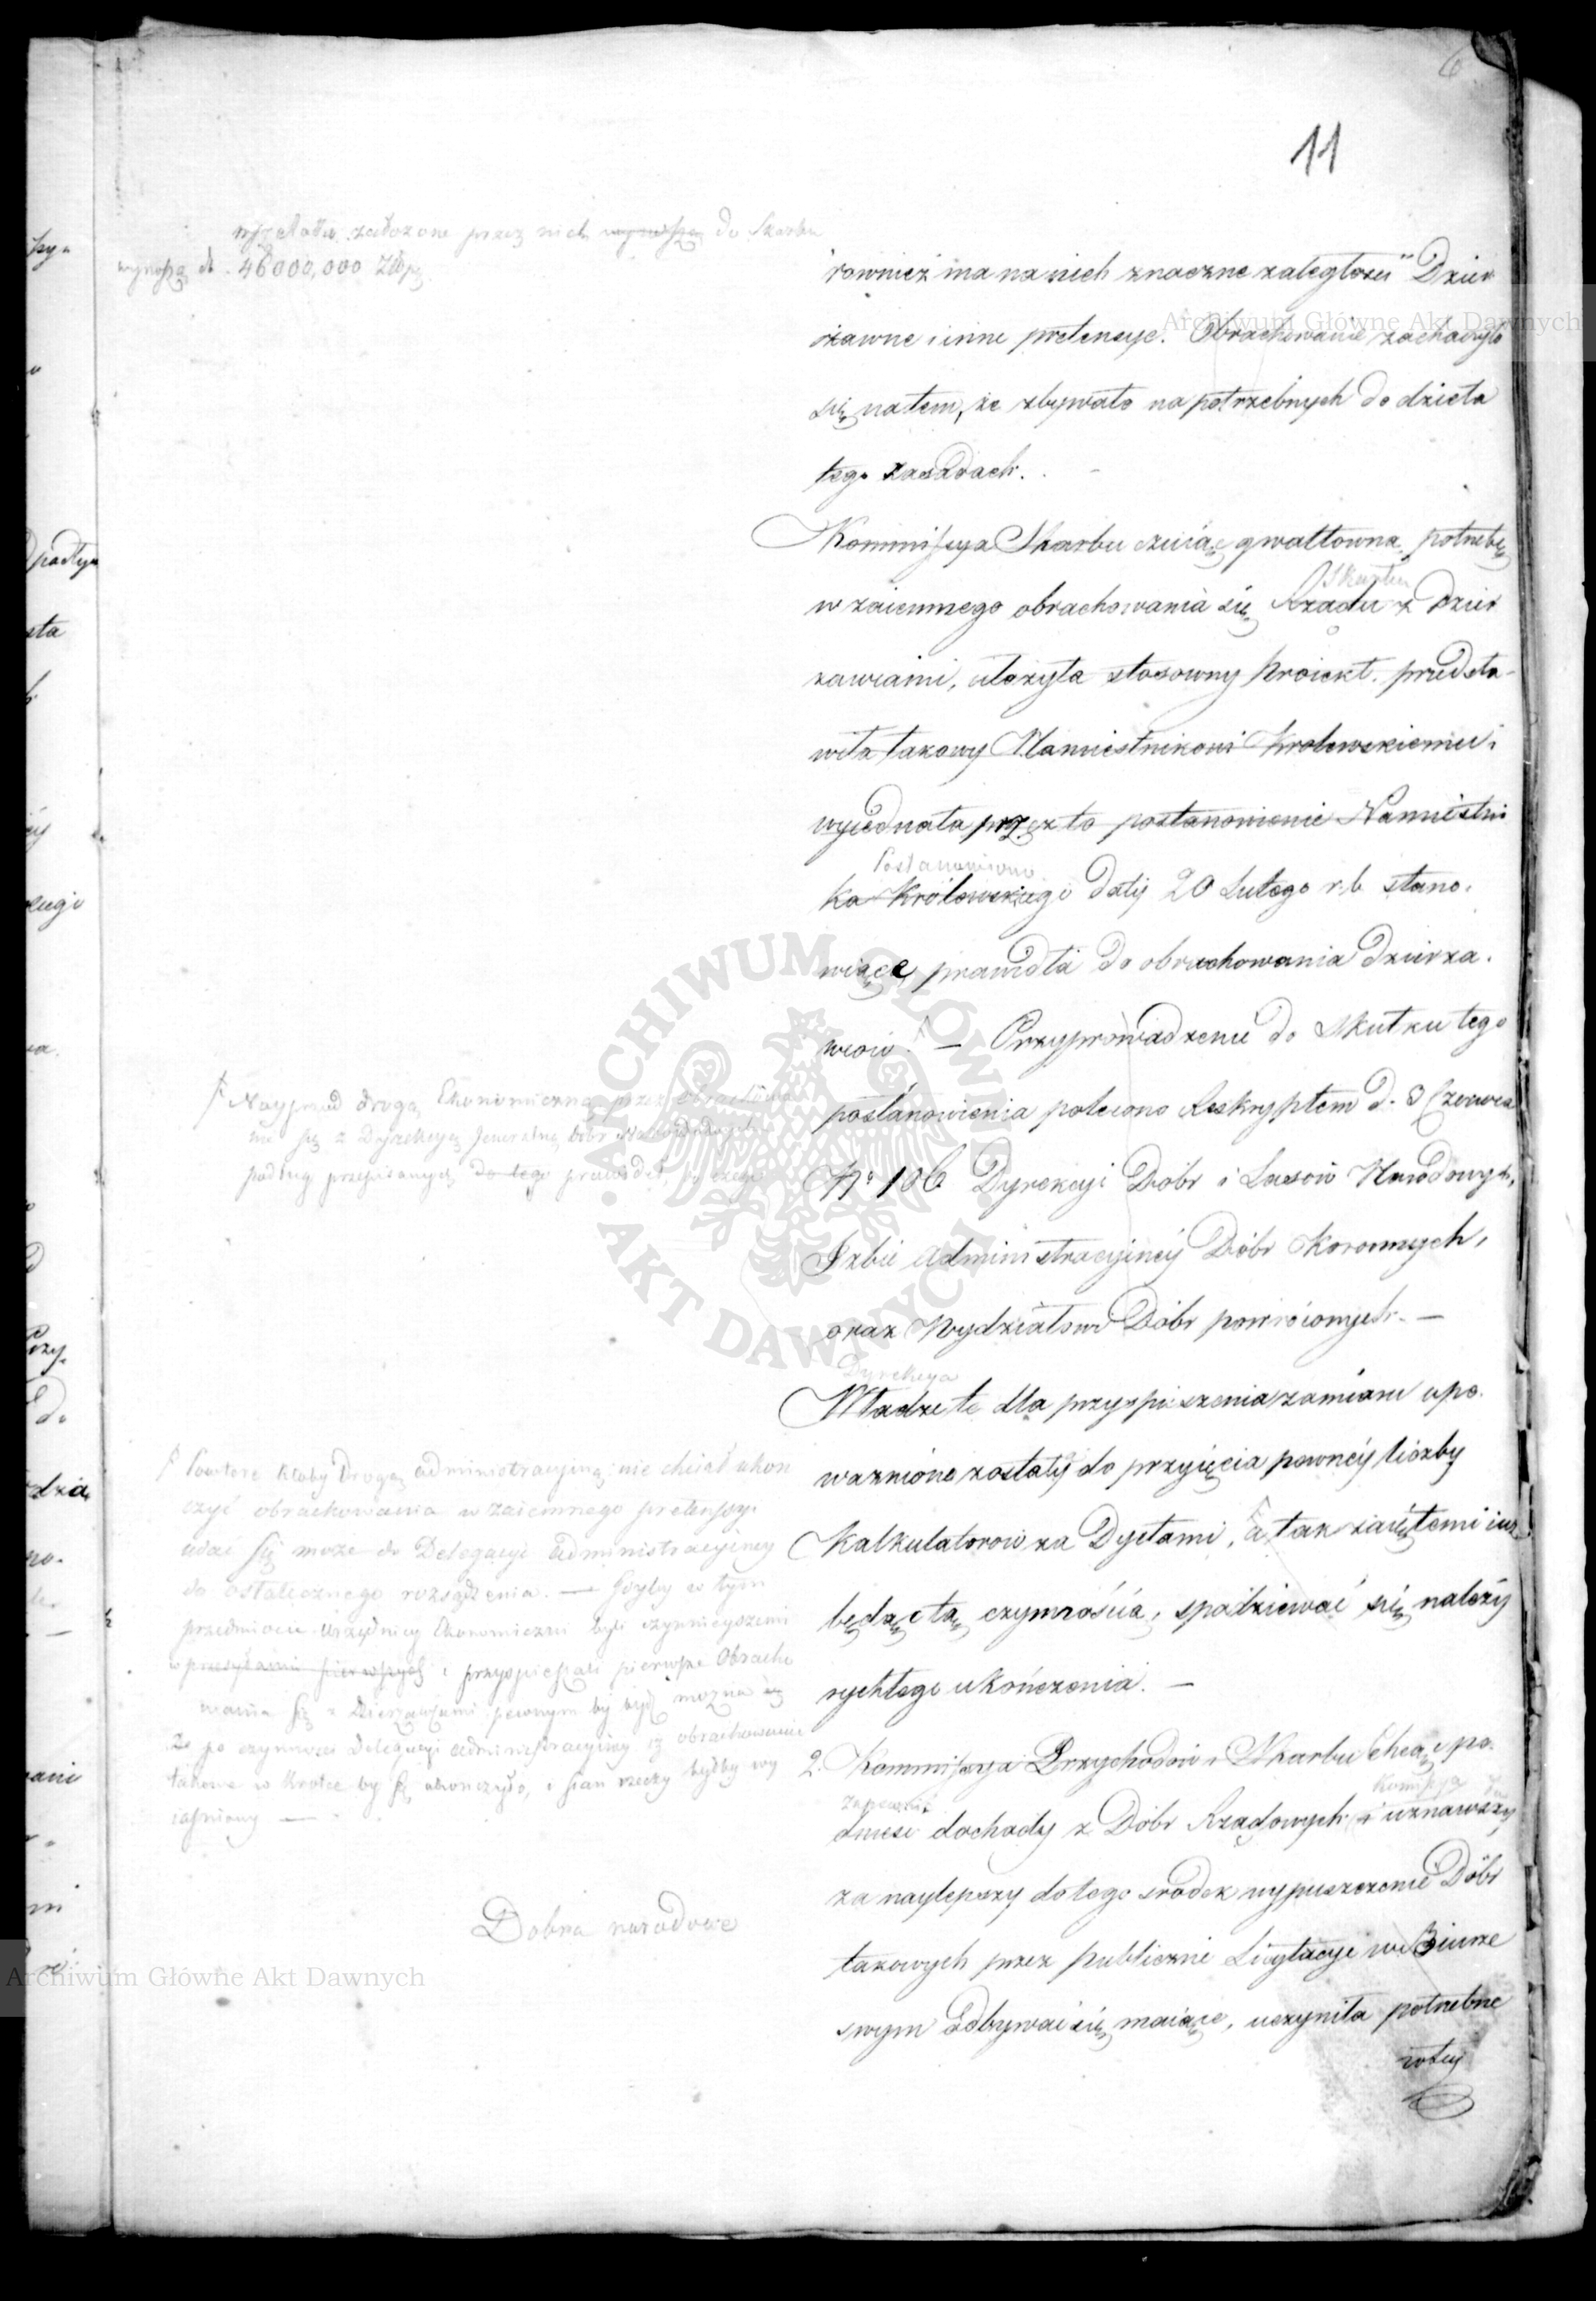 6
11
zadożone przez nich wynoszą do Skarbu
wynoszą do 46000,000 Złp
rownież ma na nich znaczne zaległosci Dzier
żawne i inne pretensye. Obrachowanie
się natem, że zbywało na potrzebnych do dzieła
tego zasadach.
Kommissya Skarbu czuiąc gwałtowną potrzebę
Skarbu
wzaiemnego obrachowania się Rządu z Dzier
zawcami, ułożyła stosowny Proiekt, przedsta-
wiła takowy Namiestnikowi Krolewskiemu i
wyiednała przezto postanowienie Namiestni
Postanowienie
ka Królewskiego daty 20 Lutego r. b. stano-
wiące prawidła do obrachowania Dzierza-
wcow. — Przyprowadzenie do Skutku tego
postanowienia polecono Reskryptem d. 3 Czerwca
No 106 Dyrekcyi Dóbr i Lasow Narodowych,
Izbie Administracyiney Dóbr Koronnych,
oraz Wydziałowi Dóbr powróconych. —
Dyrekcya
Władze te dla przyspieszenia zamiaru upo-
waznione zostały do przyięcia pewney liczby
Kalkulatorow za Dyetami, a tak zaiętemi iuż
będąc tą czynnością, spodziewać się należy
rychłego ukończenia. —
2. Kommissya Przychodow i Skarbu Chcąc po-
zapewnić Komissya
dnieść dochody z Dóbr Rządowych i uznawszy
za naylepszy do tego srodek wypuszczenie Dóbr
takowych przez publiczne Licytacye w Biurze
swym odbywać się maiące, uczyniła potrzebne
w tey
Nayprzod drogą Ekonomiczną przez obrachowa
nie się z Dyrekcyą Jeneralną Dobr Narodowych
podług przepisanych do tego prawideł,
Powtore Ktoby Drogą administracyiną nie chciał ukoń
czyć obrachowania wzaiemnego pretensyi
udać się może do Delegacyi Administracyiney
do ostatecznego rozsądzenia. — Gdyby w tym
przedmiocie Urzędnicy Ekonomiczni byli czynnieyszemi
i przyspieszali pierwsze Obracho
wania się z Dzierzawcami pewnym by być można
ze po czynności Delegacyi Administracyiney obrachowanie
takowe w krotce by się ukończyło, i stan rzeczy byłby wy
iasniony —
Dobra narodowe
Archiwum Główne Akt Dawnych
ARCHIWUM GŁÓWNE AKT DAWNYCH
Archiwum Główne Akt Dawnych